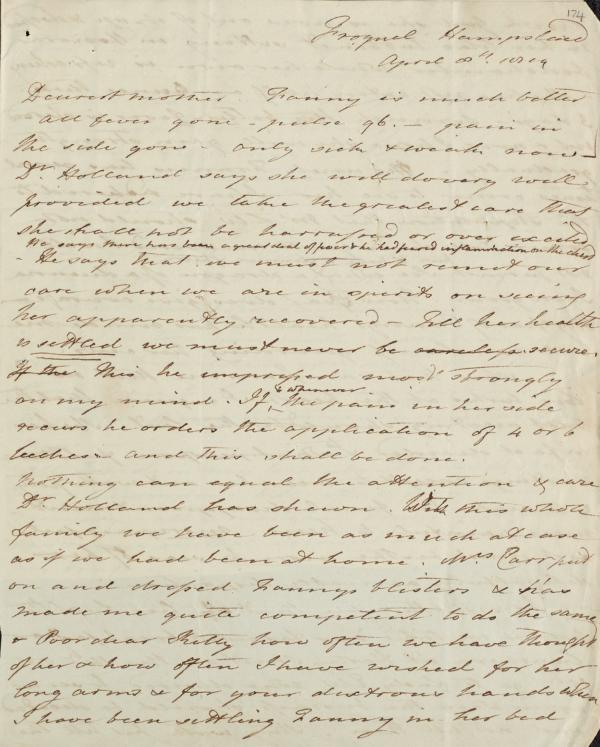 174
Frognel Hampstead
April 8th. 1819
Dearest mother. Fanny is much better
all fever gone - pulse 96. - pain in
the side gone - only sick & weak now -
Dr Holland says she will do very well
provided we take the greatest care that
she shall not be harrassed or over excited
He says there has been a great deal of fever & he had feared inflammation on the chest
- He says that we must not remit our
care when we are in spirits on seeing
her apparently recovered - Till her health
is settled we must never be careless secure.
If the This he impressed most strongly
on my mind. If & whenever the pain in her side
recurs he orders the application of 4 or 6
leeches - and this shall be done.
Nothing can equal the attention & care
Dr. Holland has shewn. With this whole
family we have been as much at ease
as if we had been at home. Mrs Carr put
on and dressed Fannys blisters & has
made me quite competent to do the same
& Poor dear Kitty how often we have thought
of her & how often I have wished for her
long arms & for your dextrous hands when
I have been settling Fanny in her bed